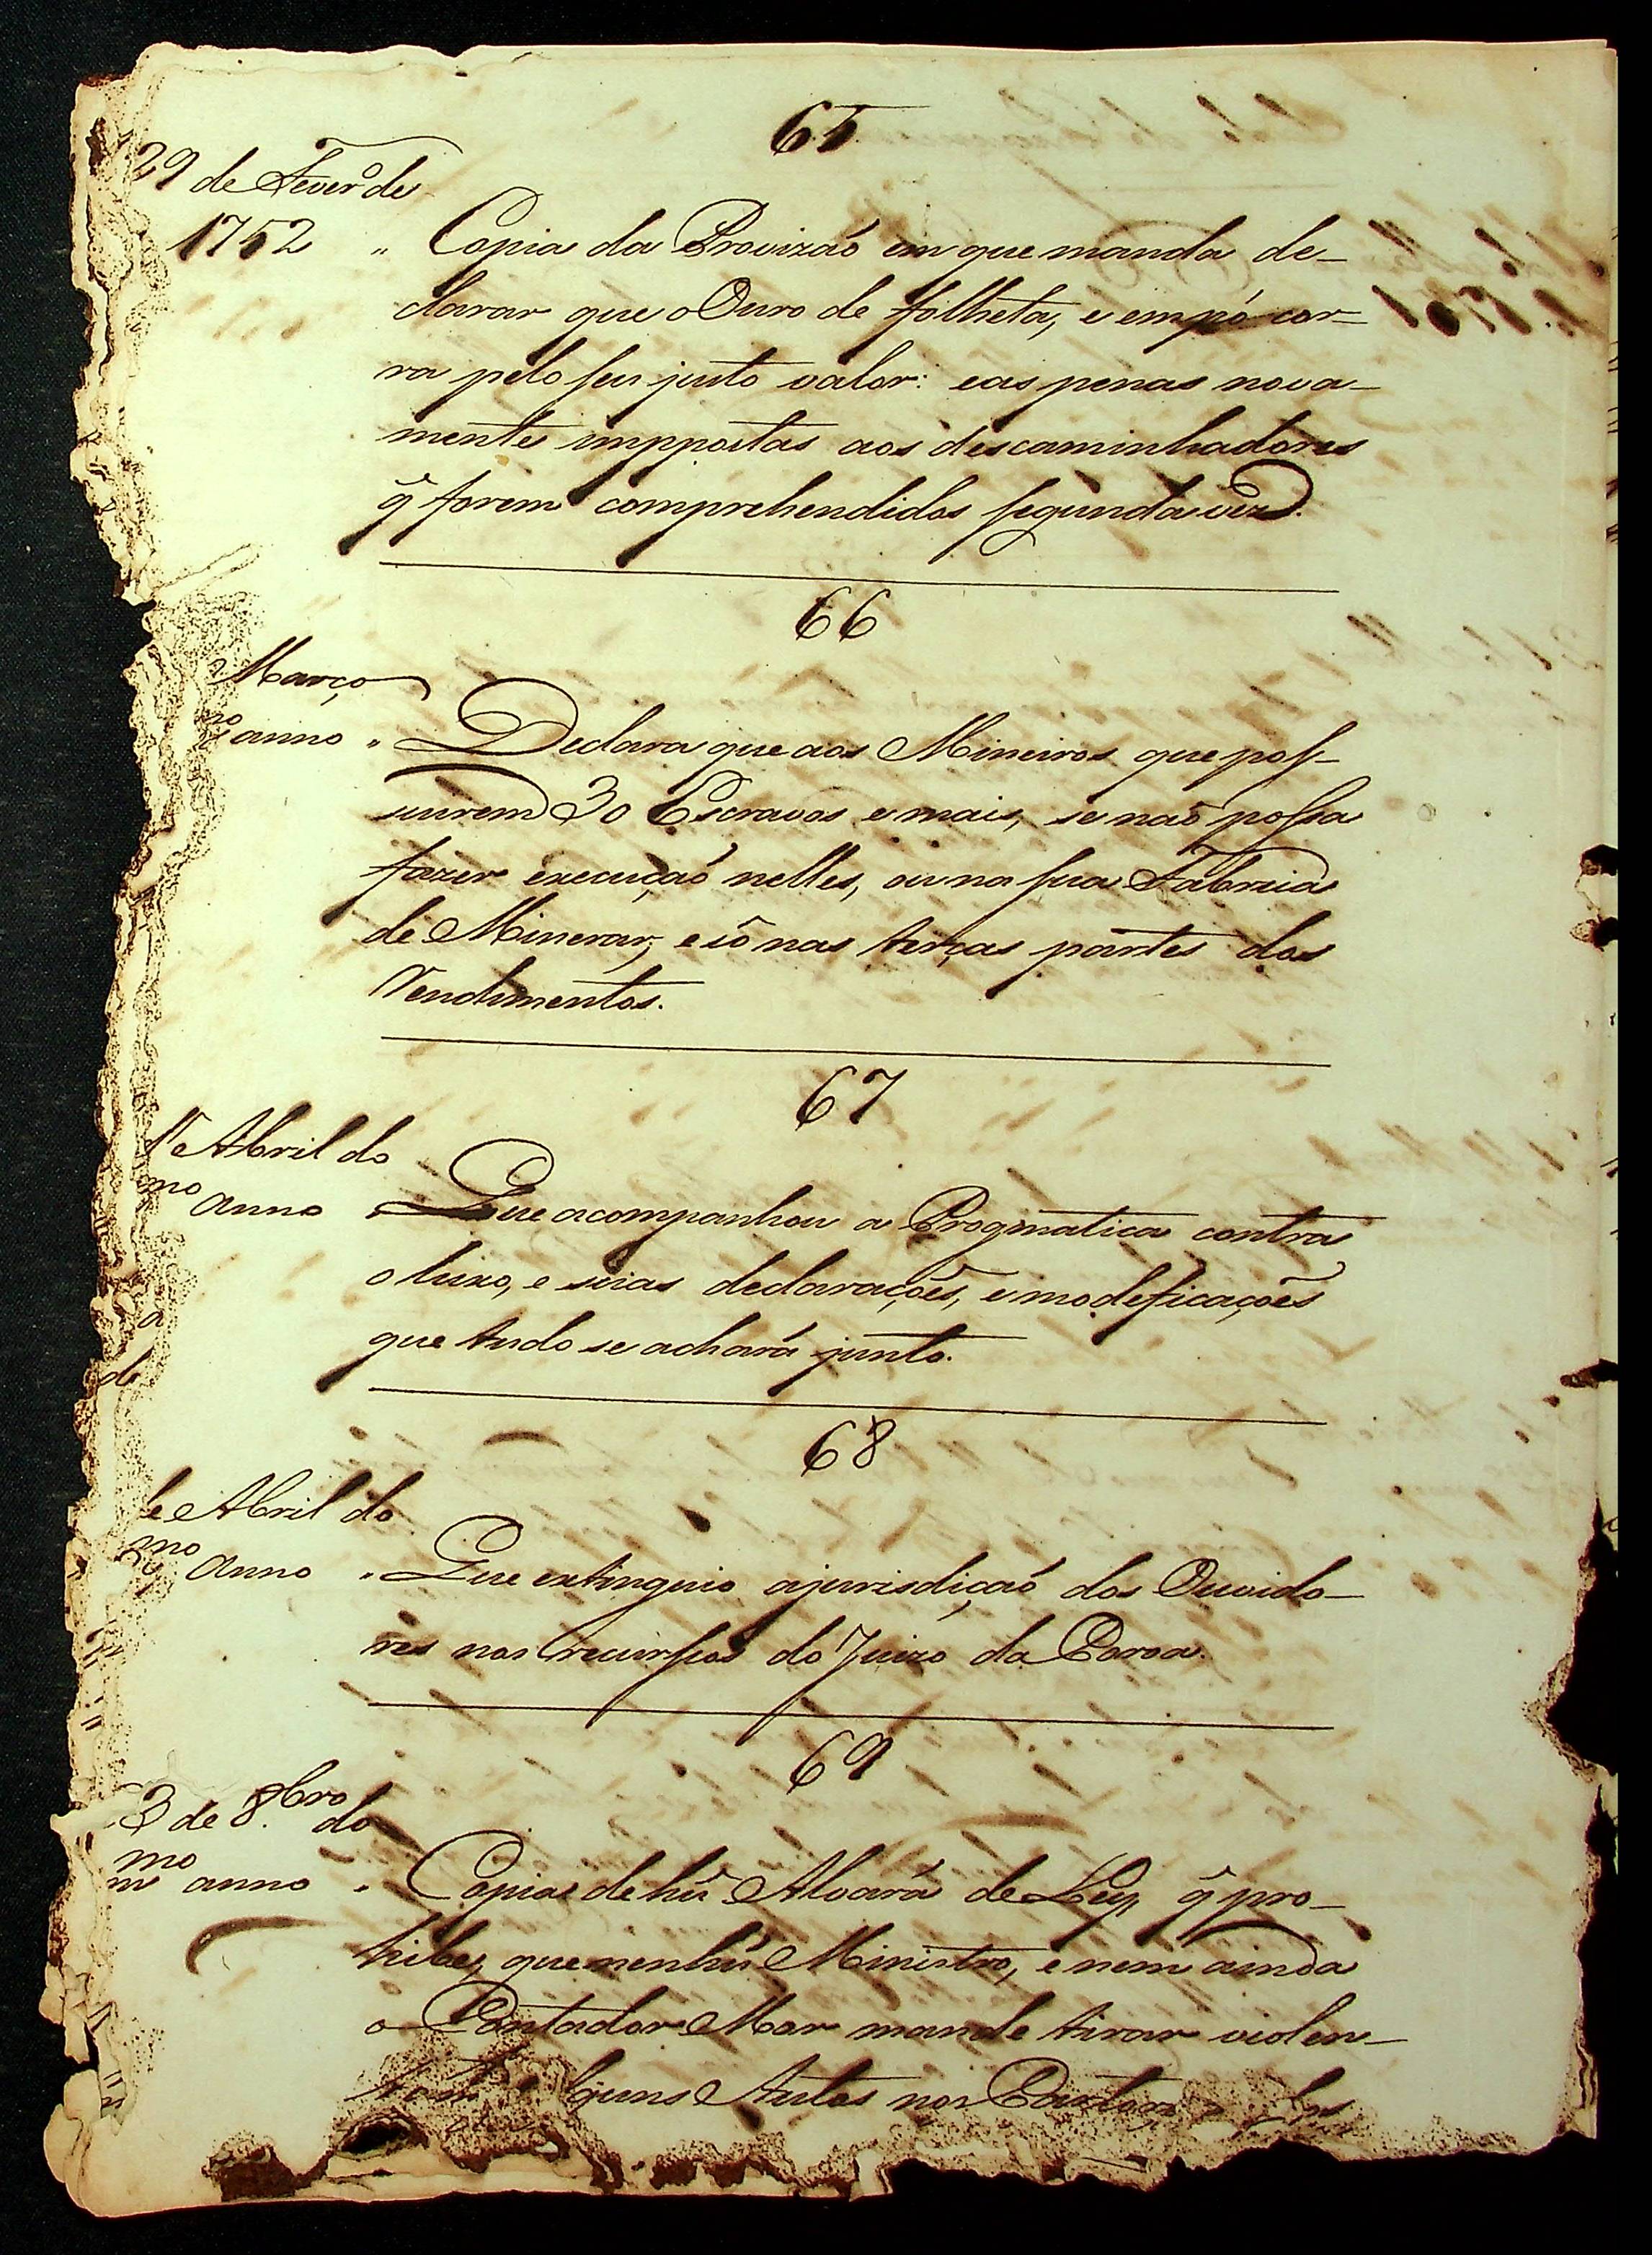 65
29 de Fever.º de
1752 " Copia da Provizaõ em que manda de-
clarar que o Ouro de folheta, e em pó cor-
ra pelo seu justo valor: e as penas nova-
mente imppostas aos descaminhadores
q̃ forem comprehendidos segunda vez.
66
Março
anno " Declara que aos Mineiros que pos-
suirem 30 Escravos e mais, se naõ possa
fazer execuçaõ nelles, ou na sua Fabrica
de Minerar, e só nas terças partes dos
Rendimentos.
67
Abril do
mo anno " Que acompanhou a Progmatica contra
o luxo, e suas declarações, e modeficações
que tudo se achará junto.
68
de Abril do
mo anno " Que extinguio a jurisdiçaõ dos Ouvido-
res nos recursos do Juizo da Coroa.
69
3 de 8.bro do
mo anno " Copia de hũ Alvará de Ley q̃ pro-
hibe, que nenhũ Ministro, e nem ainda
o Contador Mor mande tirar violen-
Autos nos